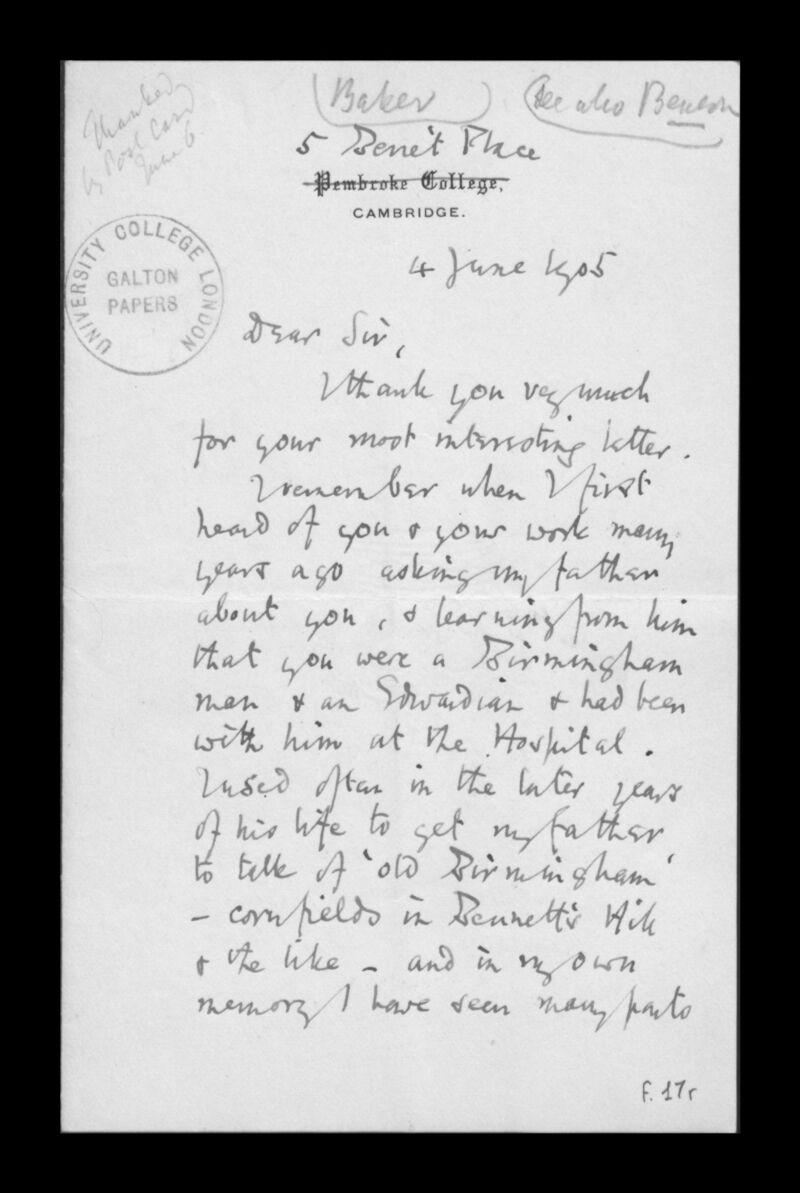 Thanked
by Post Card
June 6.
(Baker)
(See also Benson
5 Benet Place
Pembroke College,
CAMBRIDGE.
4 June 1905
UNIVERSITY COLLEGE LONDON
GALTON
PAPERS
Dear Sir,
I thank you very much
for your most interesting letter.
I remember when I first
heard of you & your work many
years ago asking my father
about you, & learning from him
that you were a Birmingham
man & an Edwardian & had been
with him at the Hospital.
I used often in the later years
of his life to get my father
to talk of 'old Birmingham'
- cornfields in Bennett's Hill
& the like - and in my own
memory I have seen many parts
F. 17r